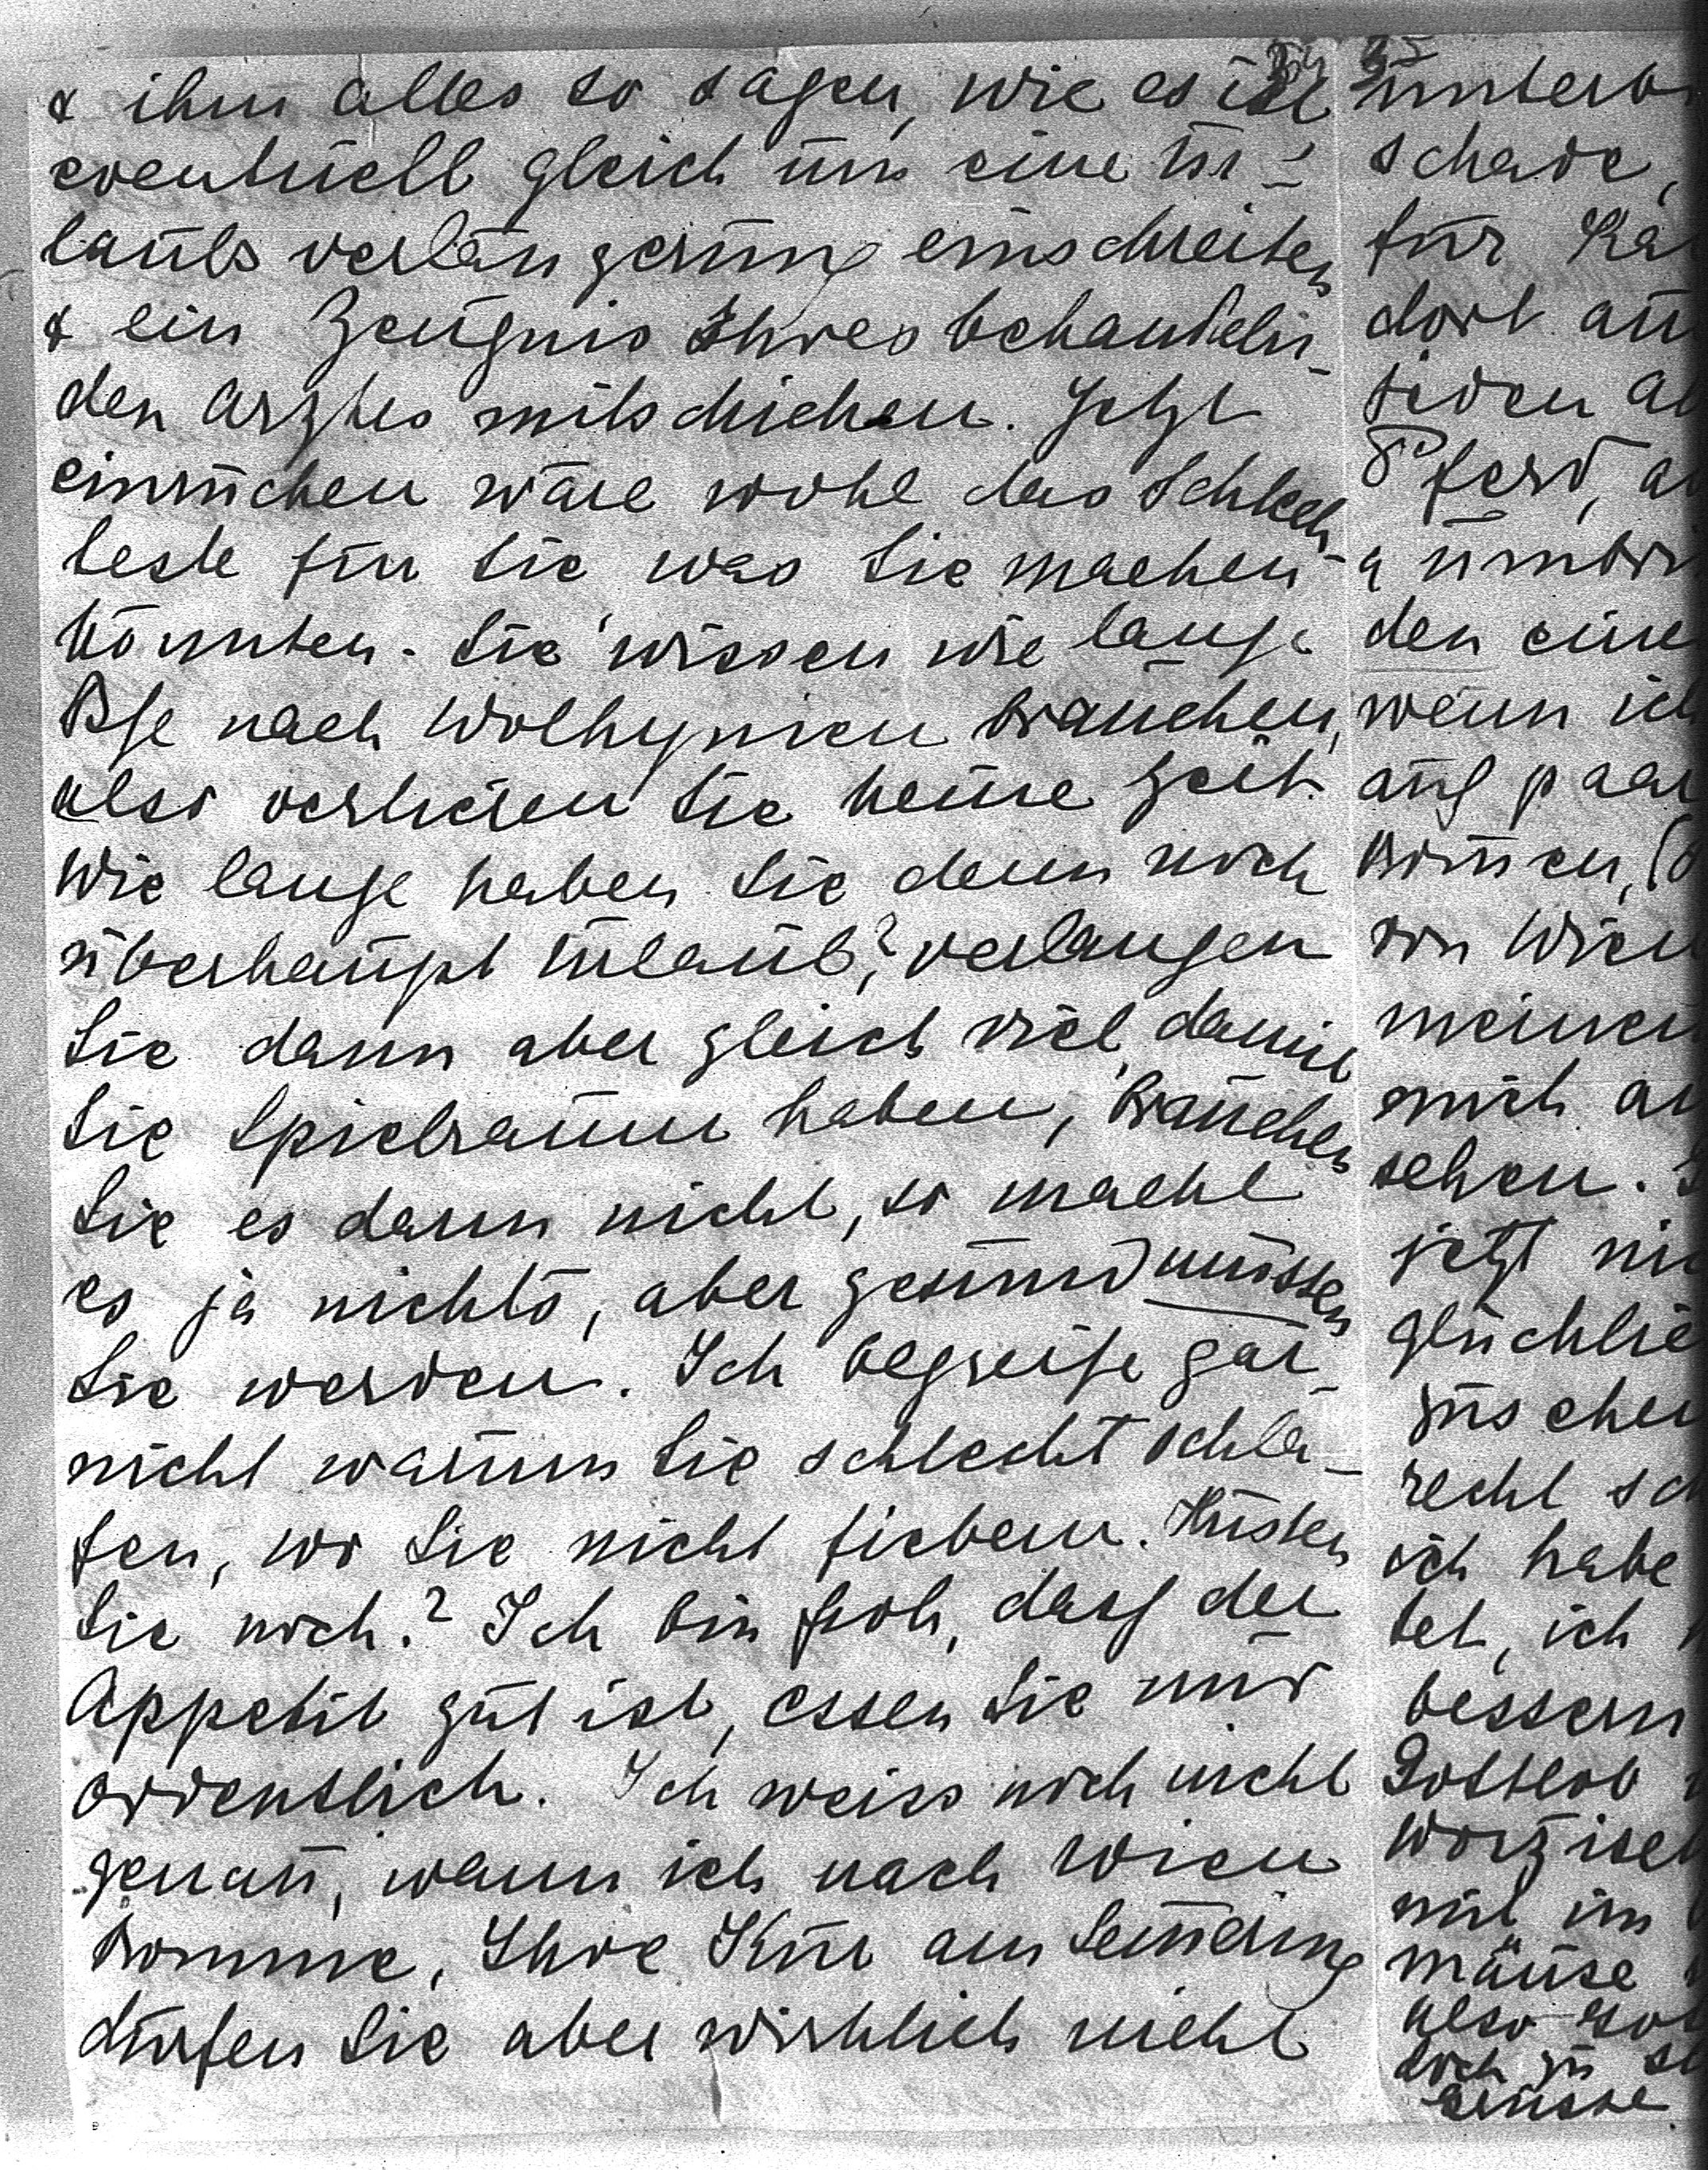 & ihm alles so sagen, wie es ist
eventuell gleich um eine Ur-
laubsverlängerung einschreiten
& ein Zeugnis Ihres behandeln-
den Arztes mitschicken. Jetzt
einrücken wäre wohl das Schlech-
teste für Sie was Sie machen
könnten. Sie wissen wie lange
Bfe nach Wolhynien brauchen,
also verlieren Sie keine Zeit.
Wie lange haben Sie denn noch
überhaupt Urlaub? verlangen
Sie dann aber gleich viel, damit
Sie Spielraum haben, brauchen
Sie es dann nicht, so macht
es ja nichts, aber gesund müssen
Sie werden. Ich begreife gar
nicht warum Sie schlecht schla-
fen, wo Sie nicht fiebern. Husten
Sie noch? Ich bin froh, dass der
Appetit gut ist, essen Sie nur
ordentlich. Ich weiss noch nicht
genau, wann ich nach Wien
komme, Ihre Kur am Semmering
dürfen Sie aber wirklich nicht
unterbr
schade,
für
dort au
jeden a
Pferd, a
den eine
wenn ich
auf paar
kommen,
von Wien
meinen
mich an
sehen.
jetzt nic
glücklic
recht sc
ich habe
tet, ich
bessern
Gottlob
mit im
mäuse
also
doch zu
Grüsse